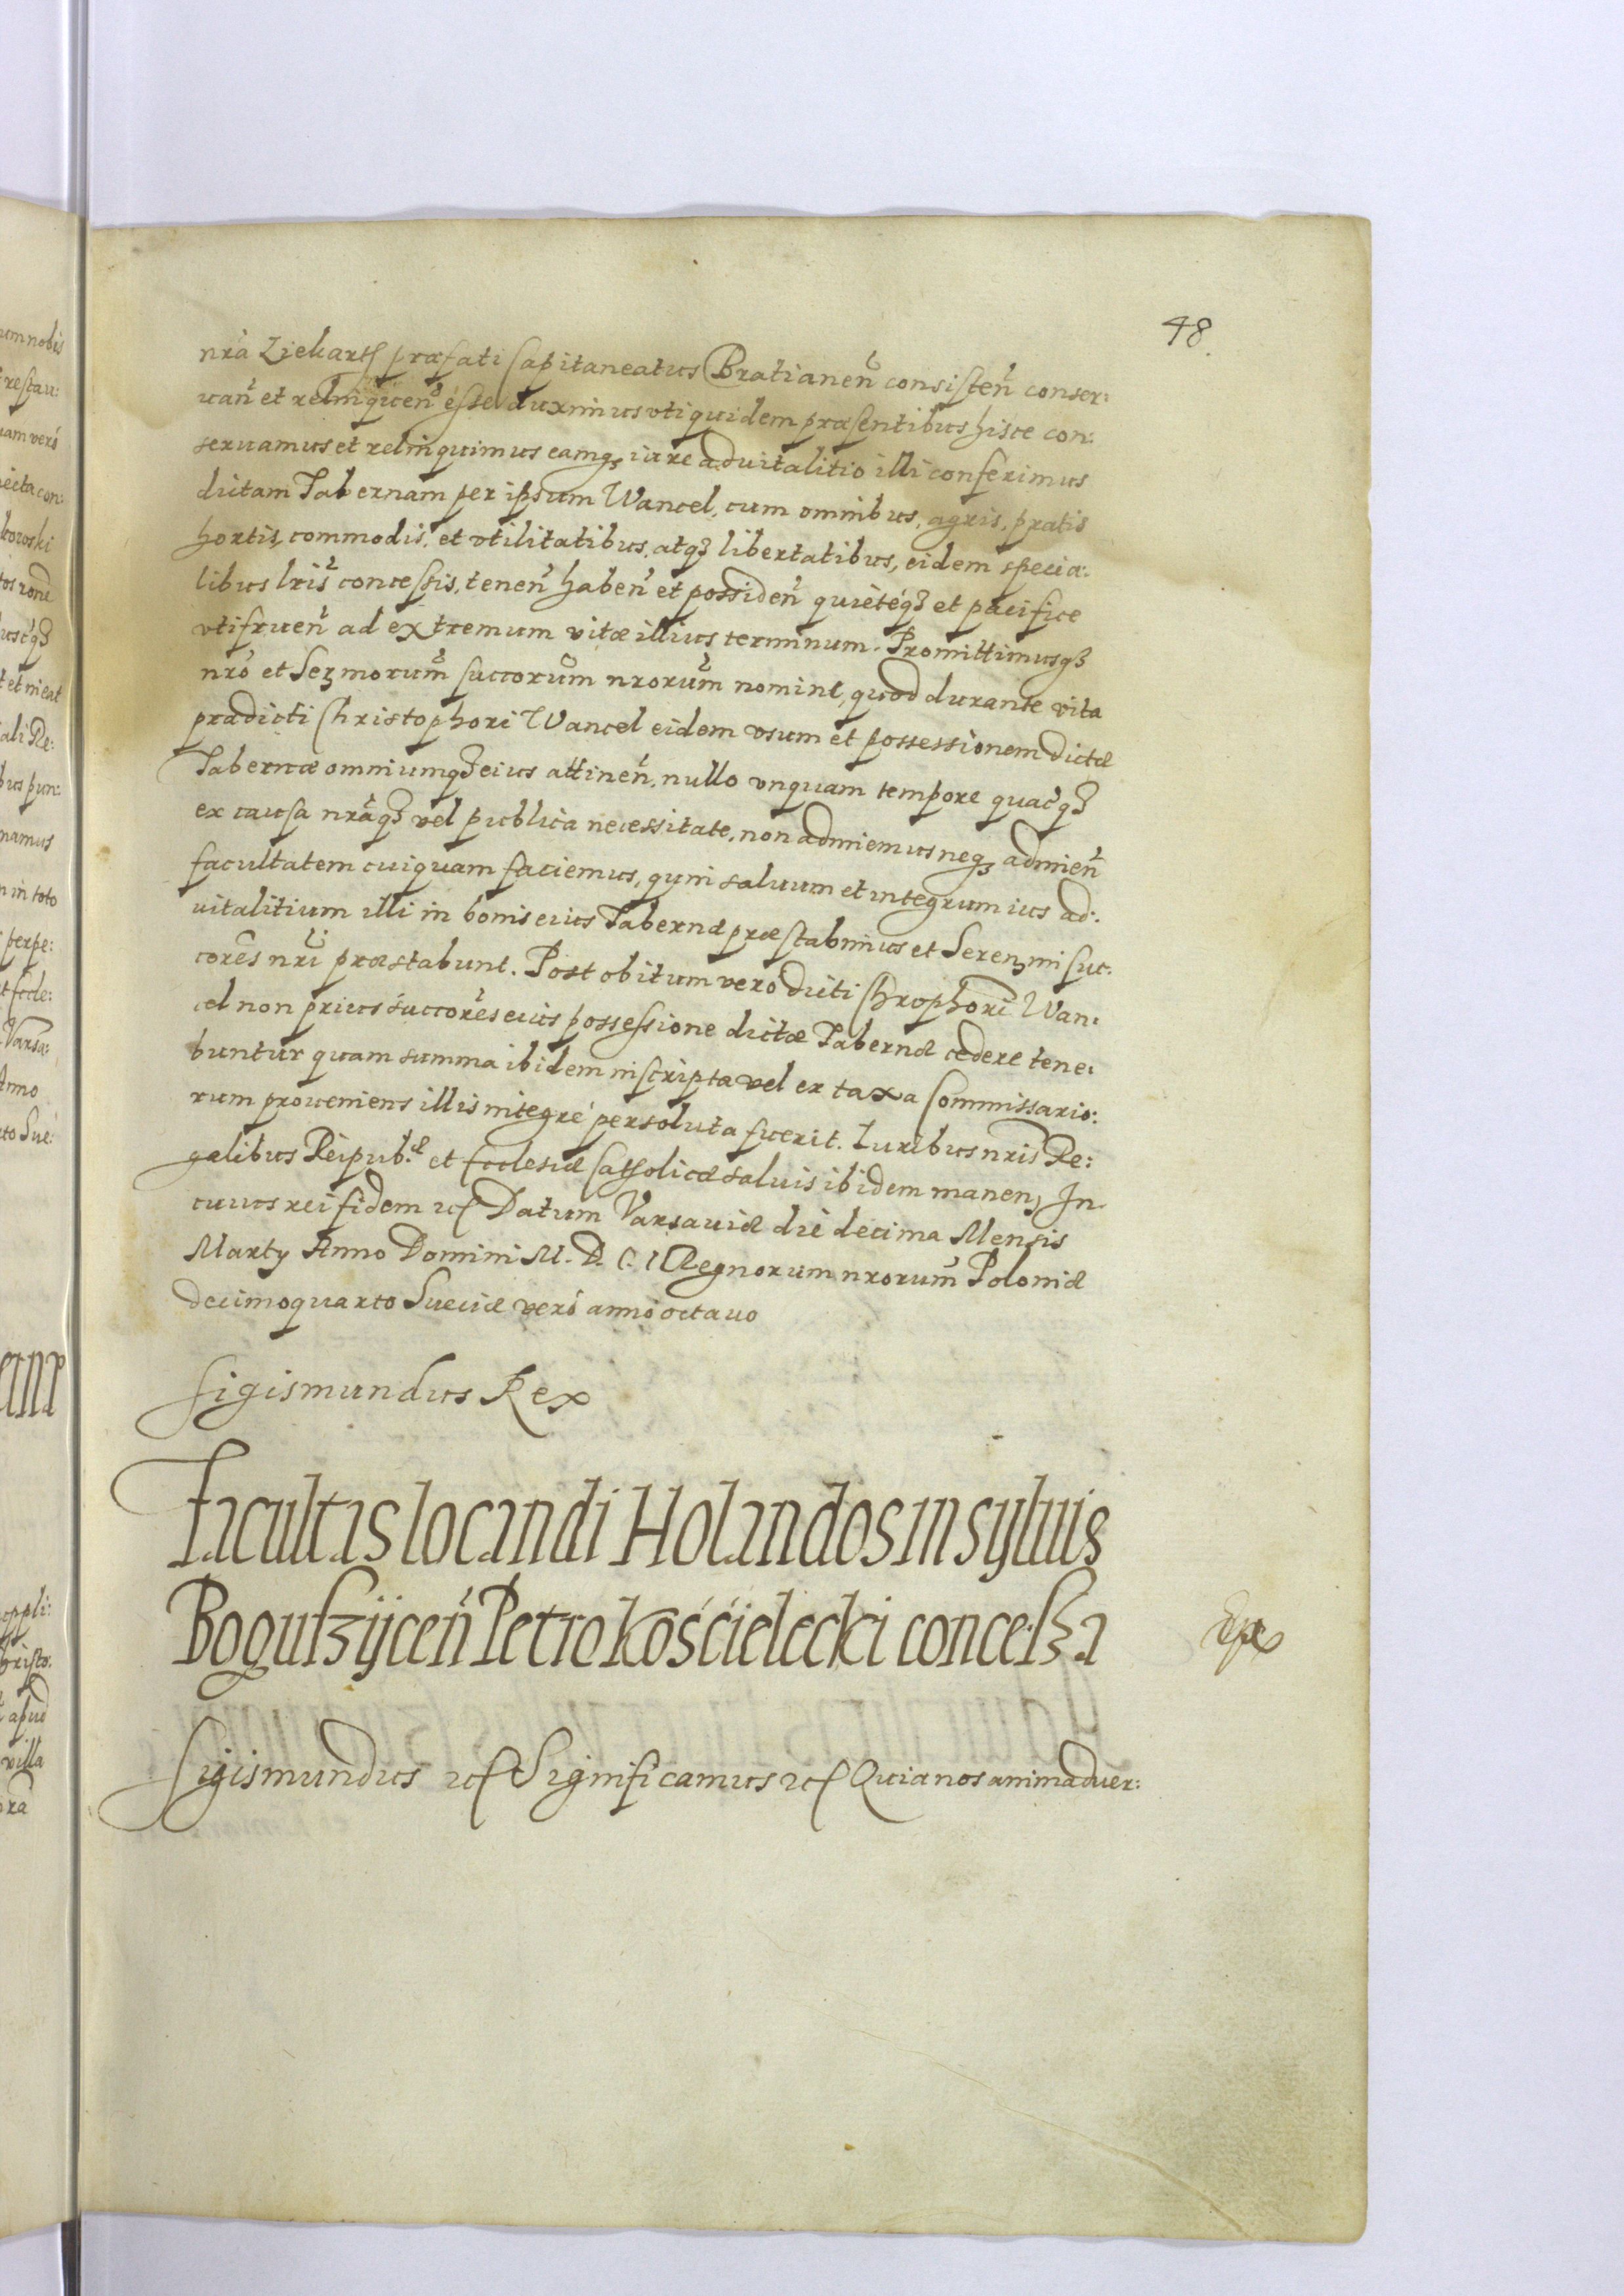 48.
nrã Ziekarth præfati Capitaneatus Bratianeñ consisteñ conser:
uañ et relinqueñ esse duximus vti quidem præsentibus hisce con:
seruamus et relinquimus eamq3 iure aduitalitio illi conferimus
dictam Tabernam per ipsum Wancel, cum omnibus, agris, pratis
hortis, commodis, et vtilitatibus, atq3 libertatibus, eidem specia:
libus lris concessis, teneñ habeñ et possideñ quietéq3 et pacifice
vtifrueñ ad extremum vitæ illius terminum. Promittimusq3
nrõ et Ser3morum succorum nrorum nomine, quod durante vita
prædicti Christophori Wancel eidem vsum et possessionem dictæ
Tabernæ omniumq3 eius attineñ, nullo vnquam tempore quacq3
ex causa nrãq3 vel publica necessitate, non adimemus neq3 adimeñ
facultatem cuiquam faciemus, quin saluum et integrum ius ad:
uitalitium illi in bonis eius Tabernæ præstabimus et Seren3mi suc:
corés nri præstabunt. Post obitum veró dicti Chrophori Wan:
cel non prius succorés eius possessione dictæ Tabernæ cedere tene:
buntur quam summa ibidem inscripta vel ex taxa Commissario:
rum proueniens illis integré persoluta fuerit. Iuribus nris Re:
galibus Reipub.æ et Ecclesiæ Catholicæ saluis ibidem manen3 In
cuius rei fidem etc Datum Varsauiæ die decima Mensis
Marty Anno Domini M. D. C. I Regnorum nrorum Poloniæ
decimoquarto Sueciæ veró anno octauo
Sigismundus Rex
Facultas locandi Holandos in syluis
Bogufzijceñ Petro Kośćielecki concessa
Sigismundus etc Significamus etc Quia nos animaduer: